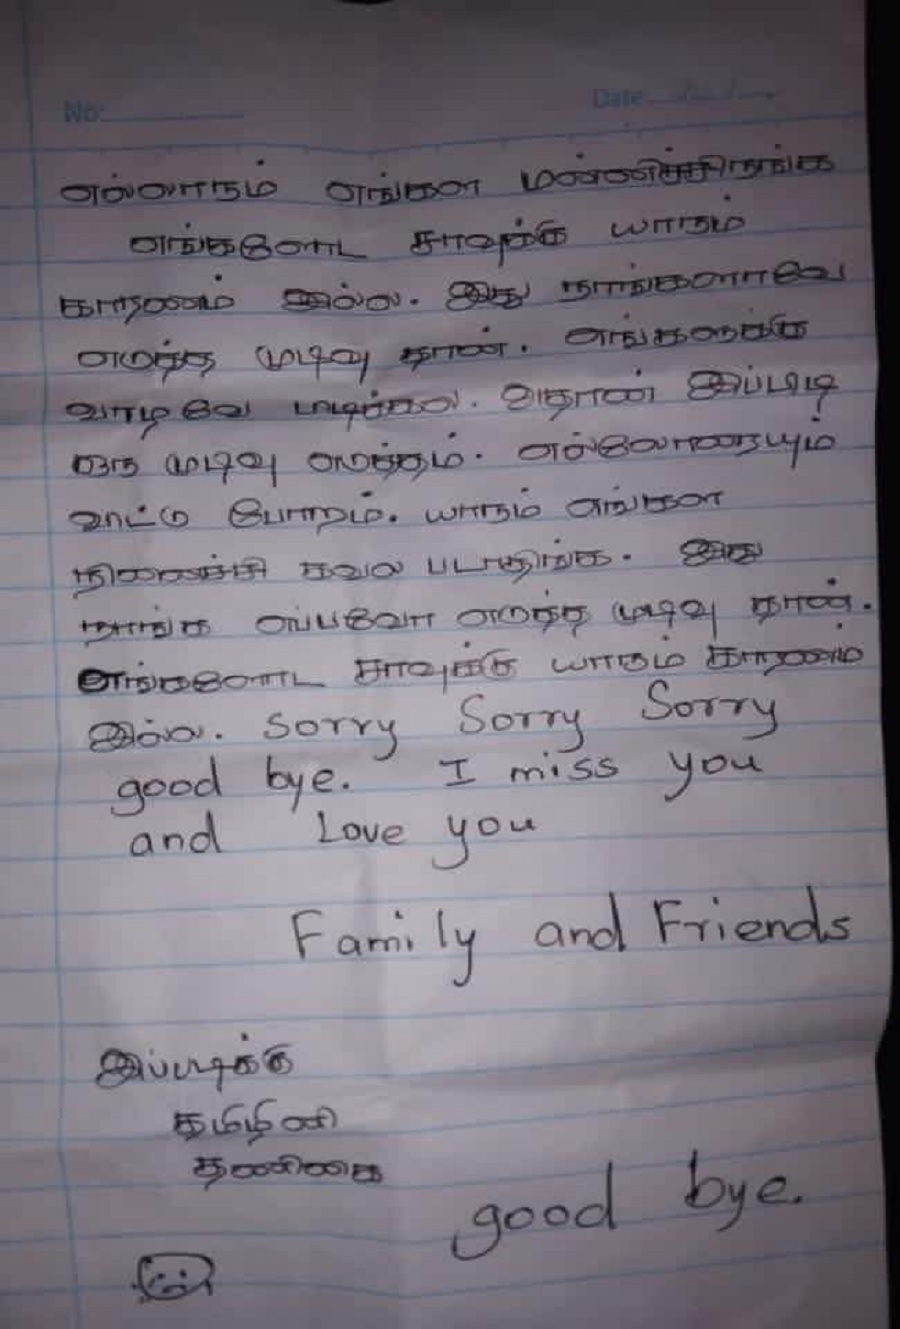 No:
Date
எல்லாரும் எங்கள மன்னிச்சிருங்க
எங்களோட சாவுக்கு யாரும்
காரணம் இல்ல. இது நாங்களாவே
எடுத்த முடிவு தான். எங்களுக்கு
வாழவே புடிக்கல. அதான் இப்புடி
ஒரு முடிவு எடுத்தம். எல்லோரையும்
உட்டு போறம். யாரும் எங்கள
நினைச்சி கவல படாதிங்க. இது
நாங்க எப்பவோ எடுத்த முடிவு தான்.
எங்களோட சாவுக்கு யாரும் காரணம்
இல்ல. Sorry Sorry Sorry
good bye. I miss you
and Love you
Family and Friends
இப்படிக்கு
தமிழினி
தணிகை
good bye.